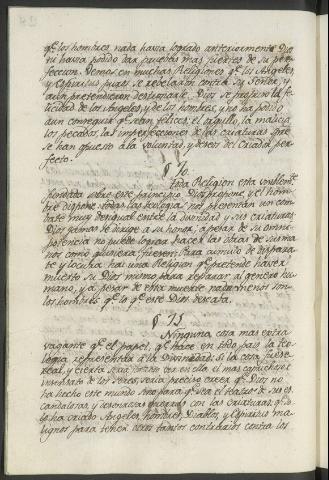 qe. los hombres nada havia logrado anteriormente Dios
ni havia podido dar pruebas mas fuertes de su per-
feccion. Vemos en muchas Religiones qe. los Angeles
y Espiritus puros se revelaron contra su Señor, y
aun pretendieron destronarle. Dios se propuso la fe-
licidad de los Angeles, y de los hombres, y no ha podido
aun conseguir qe. sean felices; el orgullo, la malicia
los pecados, las imperfecciones de las criaturas qe. se
se han opuesto a la voluntad, y deseos del Criador per-
fecto.
§ 70.
Toda Religion esta visiblemte.
fundada sobre este principio Dios propone, y el hom-
bre dispone. todas las teologias nos presentan un com-
bate muy desigual entre la Divinidad y sus criaturas
Dios jamas se dirige a su honor; a pesar de su omni-
potencia no puede lograr hacer las obras de sus ma-
nos como quisiera fuesen. Para aumento de dispara-
te y locura, hai una Religion qe. pretende haver
muerto su Dios mismo para reparar al genero hu-
mano, y a pesar de esta muerte nada menos son
los hombres qe. lo qe. este Dios deseaba.
§ 71
Ninguna cosa mas extra
vagante qe. el papel, qe. hace en todo pais la teo-
logia representar a la Divinidad: si la cosa fuese
real, y cierta seria forzoso ver en ella el mas caprichoso e
insensato de los seres, seria preciso creer qe. Dios no
ha hecho este mundo sino para qe. sea el teatro de sus es-
candalosas, y deshonrosas guerras con las criaturas; qe. so-
lo ha criado Angeles, hombres, Diablos, y Espiritus ma-
lignos para tener otros tantos contrarios contra los